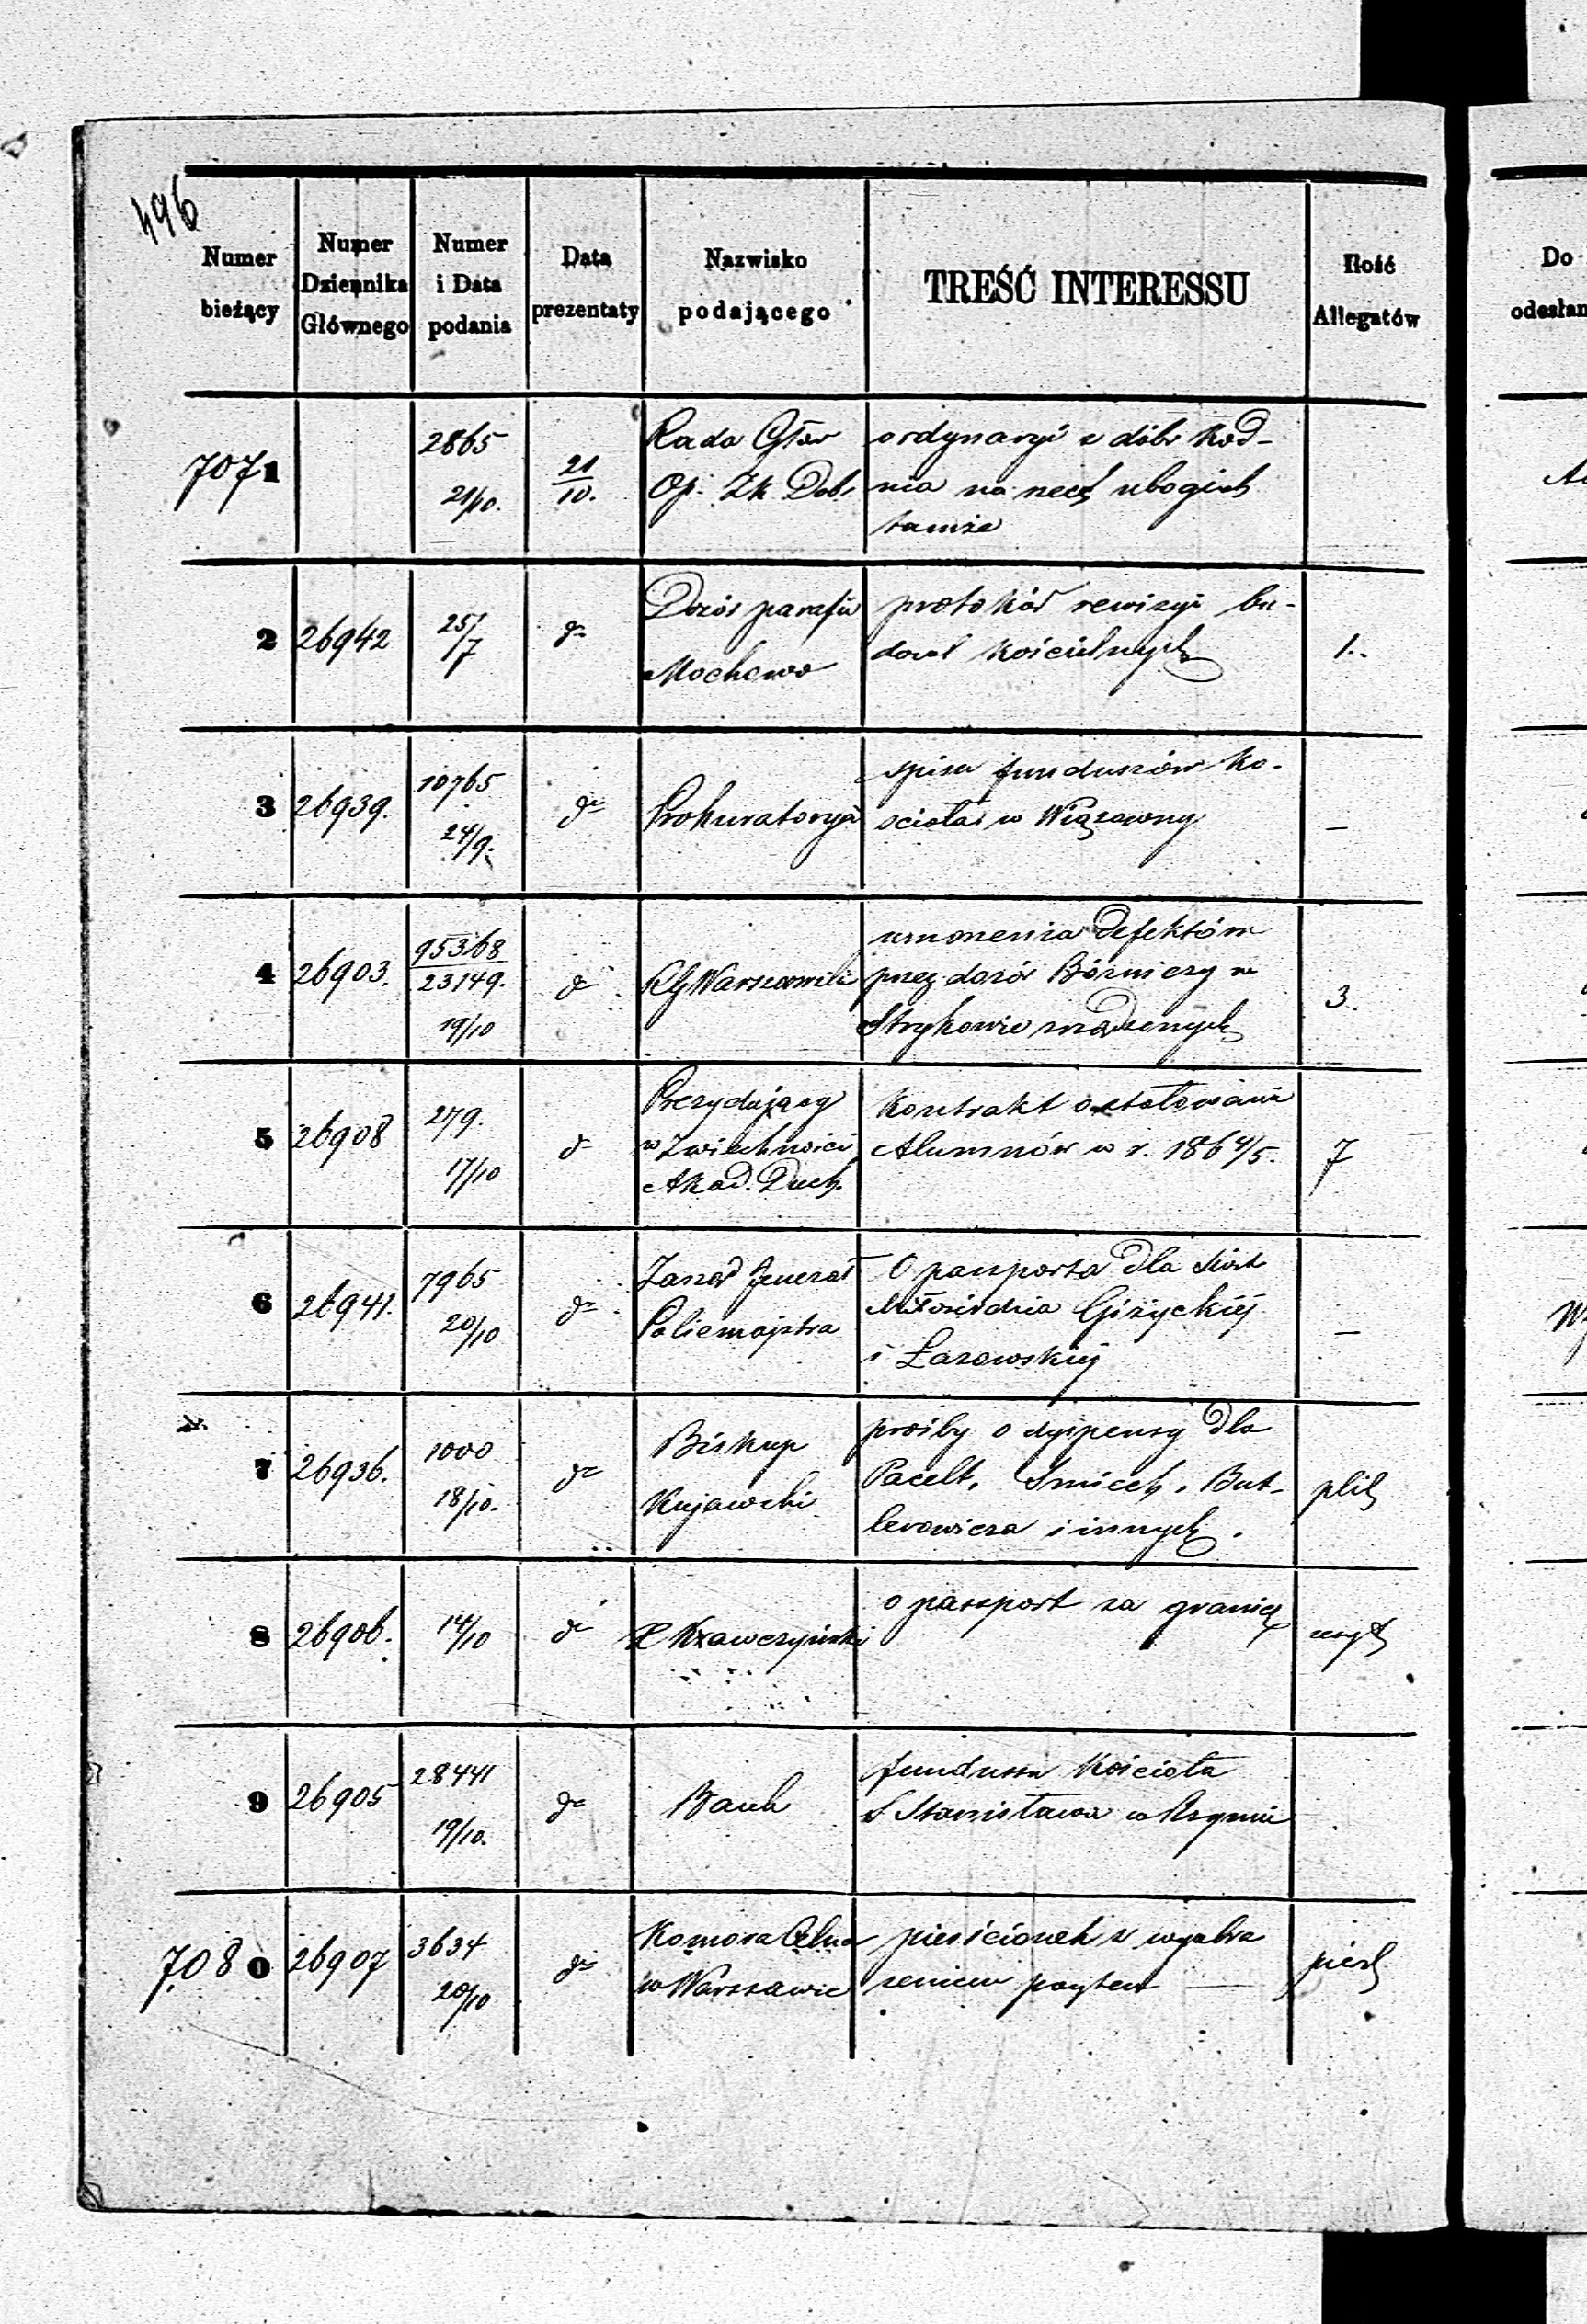 496
Numer bieżący
Numer Dziennika Głównego
Numer i Data podania
Data prezentaty
Nazwisko podającego
TREŚĆ INTERESSU
Ilość Allegatów
Do
odesłan
7071
2865
21/10.
21/10.
Rada Głów
Op. Zk Dob.
ordynaryi z dóbr Kod-
nia na rzecz ubogich
tamże
2
26942
25/7
do
Dozór parafii
Mochowo
protokół rewizyi bu-
dowl Kościelnych
1.
3
26939.
10765
24/9.
do
Prokuratorya
spisu funduszów Ko-
ścioła w Wiązowny
–
4
26903.
95368
23149.
19/10
do
RG Warszawski
defektów
przez dozór Bóżniczy w
Strykowie zrządzonych
3.
5
26908
279.
17/10
do
Prezydujący
w Zwierzchnici
Akad. Duch.
Kontrakt o stołowanie
Alumnów w r. 1864/5.
7
6
26941.
7965
20/10
do
Zarząd Generał
Policmajstra
O paszporta dla Siost
Miłosierdzia Giżyckiéj
i Łazowskiej
–
7
26936.
1000
18/10.
do
Biskup
Kujawski
prośby o dyspensy dla
Pacelt. Smiech. But-
lerowicza i innych.
plik
8
26906.
14/10
do
X Krawczyński
o passport za granicę
9
26905
28441
19/10.
do
Bank
fundusz Kościoła
S Stanisława w Rzymie
7080
26907
3634
20/10
do
Komora Celna
w Warszawie
pierścionek z wyobra
żeniem